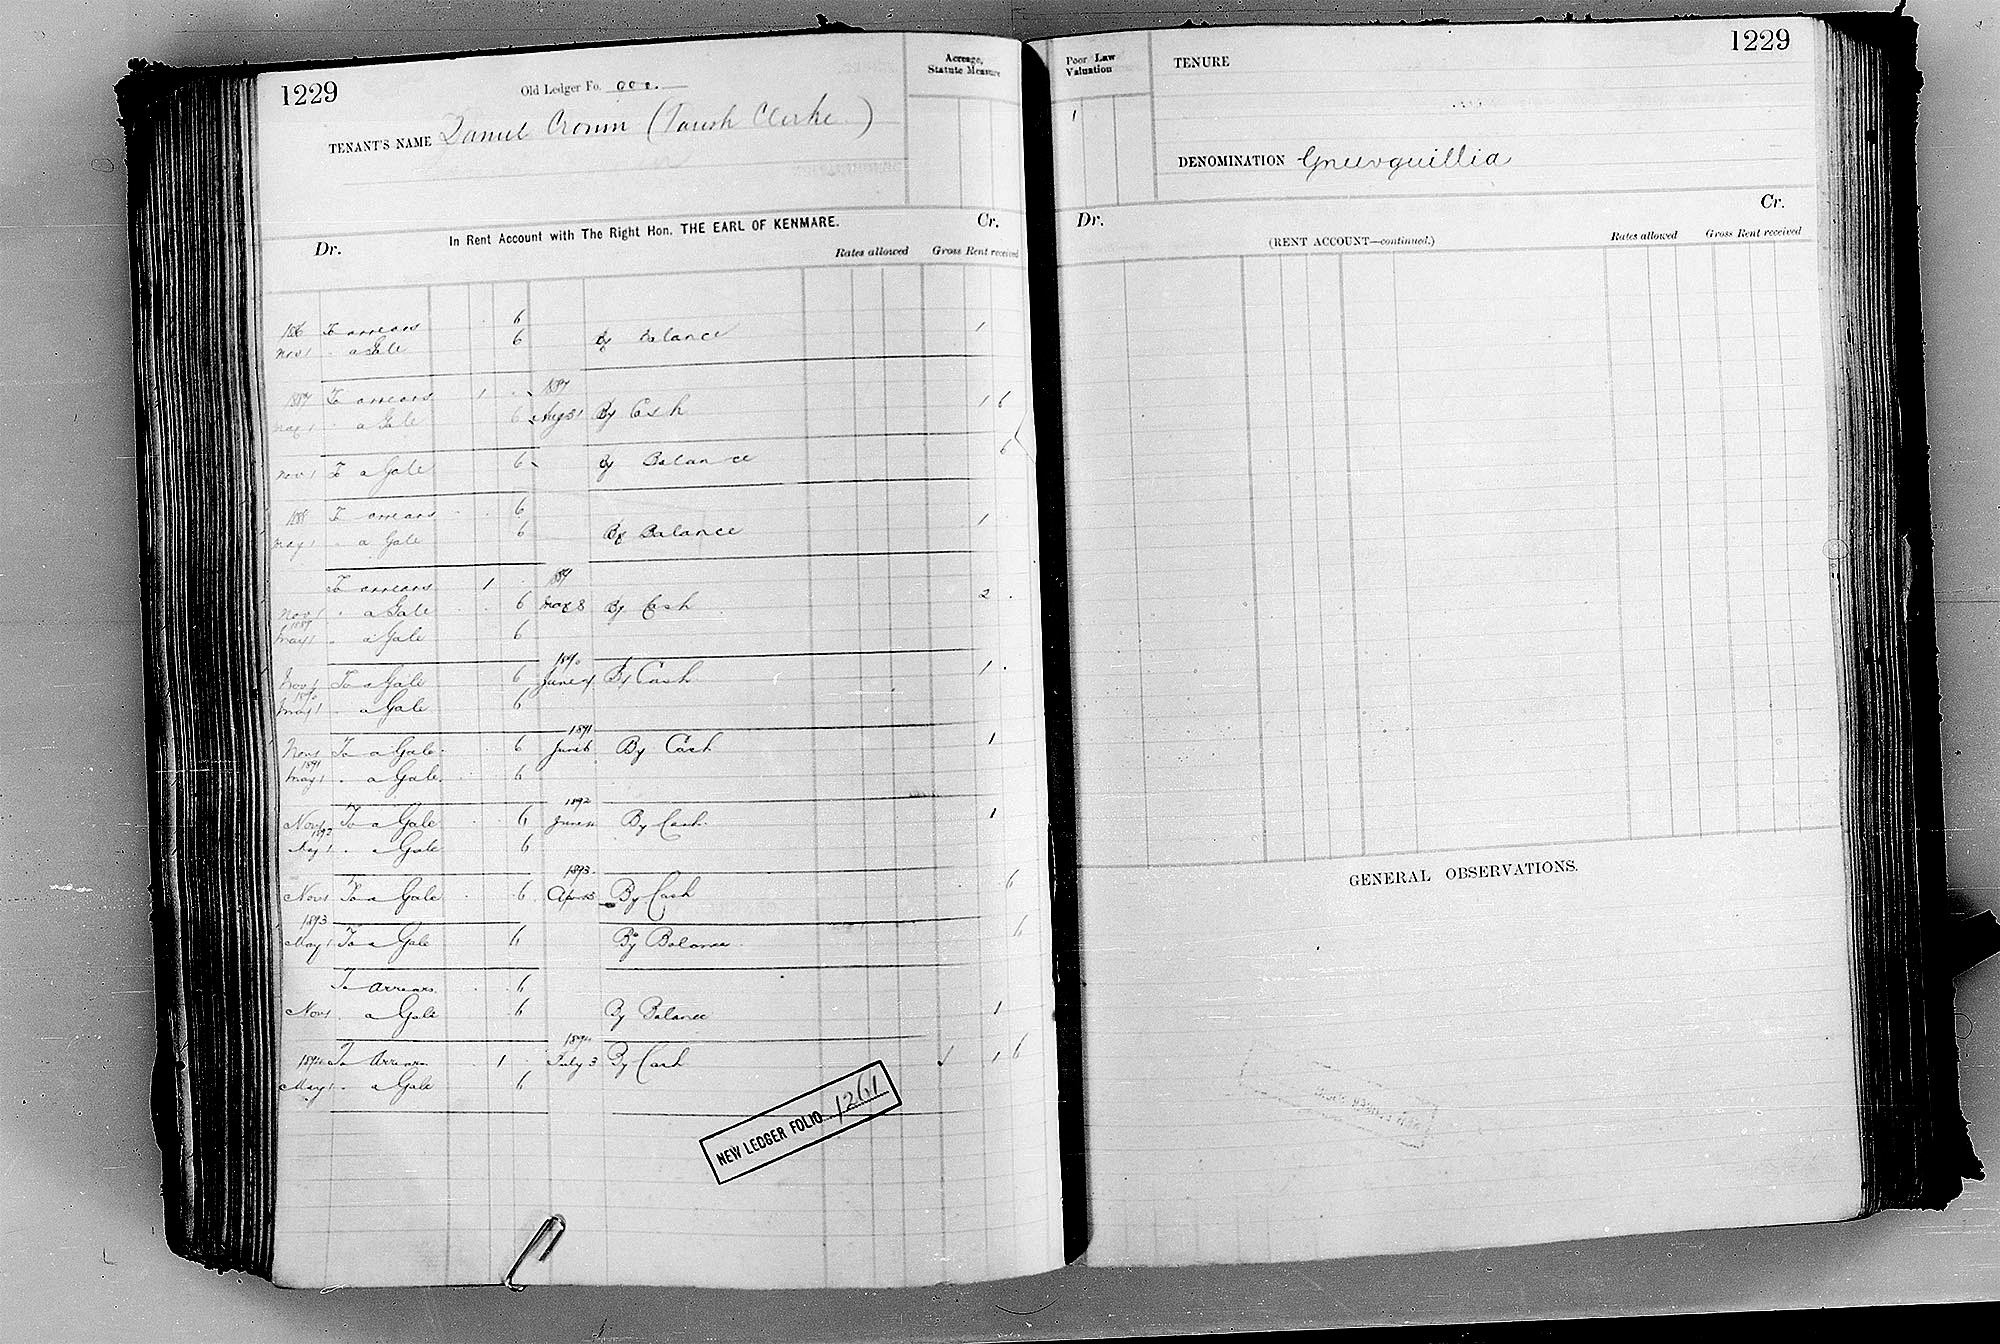 1229
Old Ledger Fo.
TENANT'S NAME Daniel Cronin (Parish Clerke)
Acreage, Statute Measure
In Rent Account with The Right Hon. THE EARL OF KENMARE.
Dr. Cr.
Rates allowed Gross Rent received
1886 To arrears 6
Nov 1 " a Gale 6 By Balance 1
1887 To arrears 1 . 1887
May 1 " a Gale 6 Aug 31 By Cash 1 6
Nov 1 To a Gale 6 By Balance 6
1888 To arrears 6
May 1 " a Gale 6 By Balance 1
To arrears 1 . 1889
Nov 1 " a Gale 6 May 8 By Cash 2 .
1889
May 1 " a Gale 6
1890
Nov 1 To a Gale 6 June By Cash 1 .
1890
May 1 " a Gale 6
1891
Nov 1 To a Gale 6 June 6 By Cash 1
1891
May 1 " a Gale 6
1892
Nov 1 To a Gale 6 June By Cash 1
1892
May 1 " a Gale 6
1893
Nov 1 To a Gale 6 Apr By Cash 6
1893
May 1 To a Gale 6 By Balance 6
To Arrears 6
Nov 1 " a Gale 6 By Balance 1
1894
1894 To Arrears 1 . July 3 By Cash 1 6
May 1 " a Gale 6
NEW LEDGER FOLIO 1261
1229
Poor Law Valuation
1
TENURE
DENOMINATION Gneevguillia
Dr. Cr.
(RENT ACCOUNT—continued.)
Rates allowed Gross Rent received
GENERAL OBSERVATIONS.